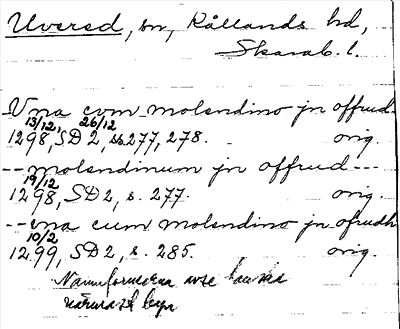 Uversd, sn, Kållands hd,
Skarab. l.
Una cum molendino jn offrud
13/12, 26/12
1298, SD 2, ss. 277, 278. orig.
-- molendinum jn offrud ---
19/12
1298, SD 2, s. 277. orig.
-- una cum molendino jn ofrudh
10/2
1299, SD 2, s. 285. orig.
Namnformerna avse kanske
närmast byn